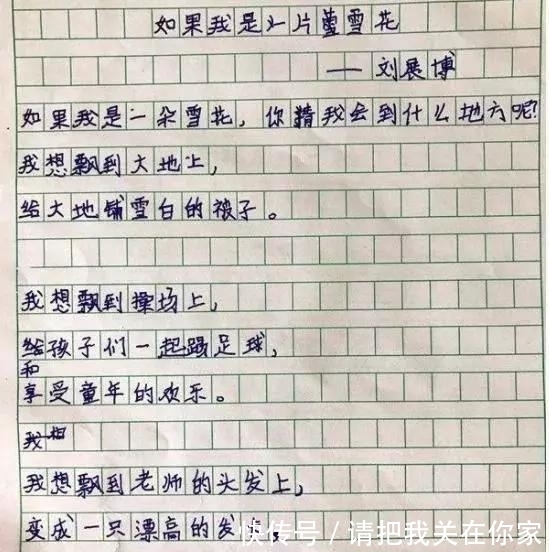 如果我是一片雪花
——刘展博
如果我是一朵雪花,你猜我会到什么地方呢?
我想飘到大地上,
给大地铺雪白的被子。
我想飘到操场上,
给孩子们一起踢足球,
和
享受童年的欢乐。
我想
我想飘到老师的头发上,
变成一只漂高的发
快传号/请把我关在你家